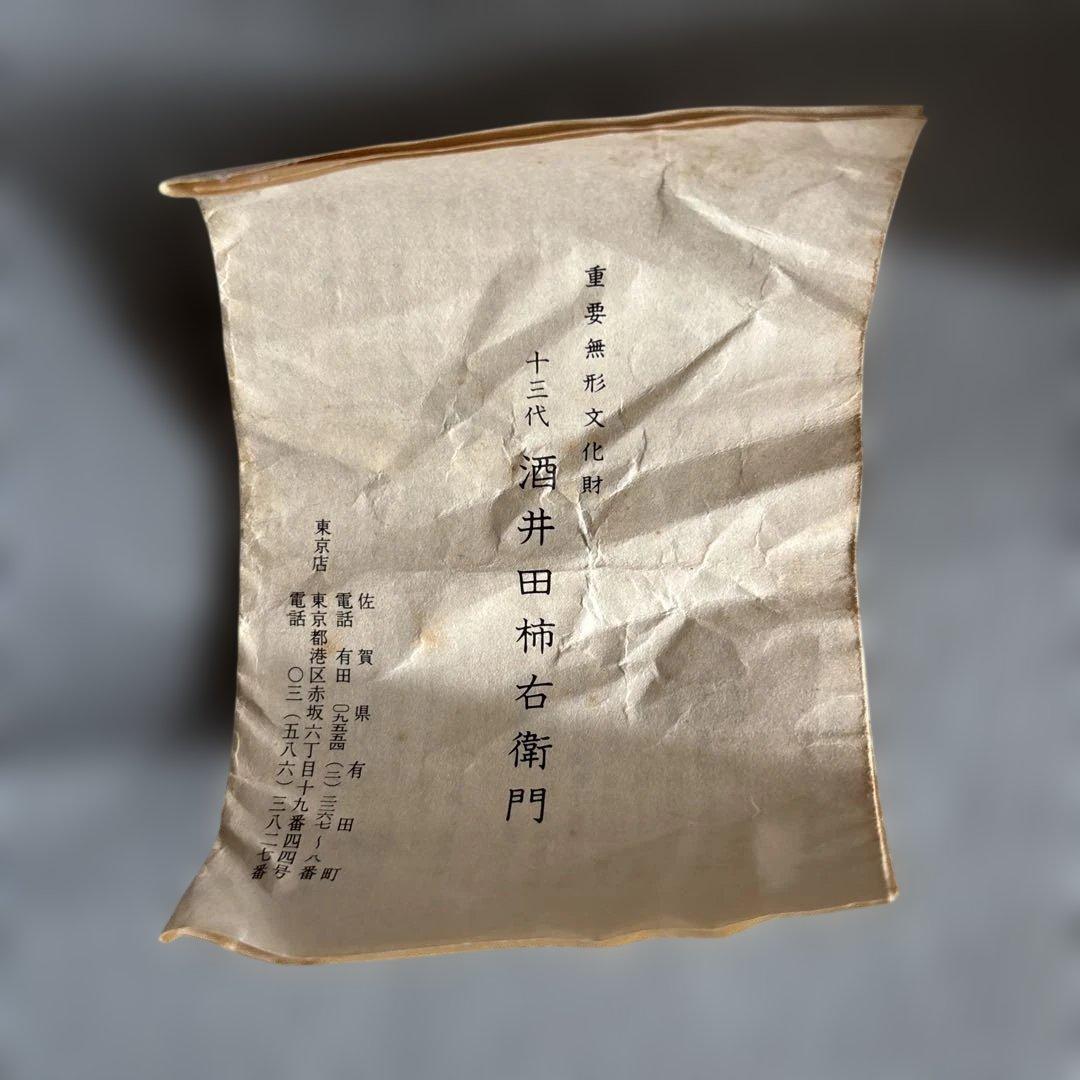 重要無形文化財
十三代 酒井田柿右衛門
佐賀県有田町
電話 有田 〇九五五四(二)三二六七～八番
東京店 東京都港区赤坂六丁目十九番四四号
電話 〇三(五八六)三八二七番